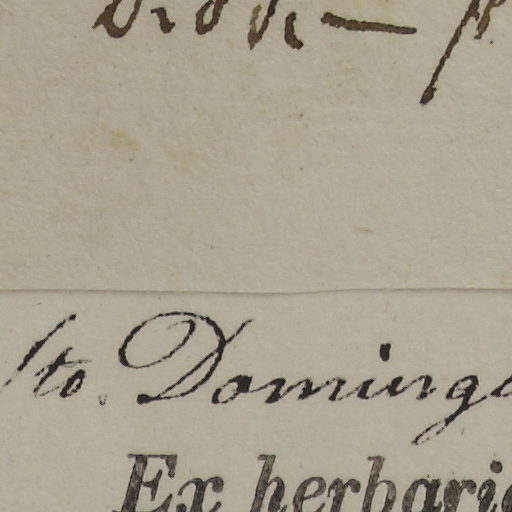 Sto. Domingo
Ex herbario